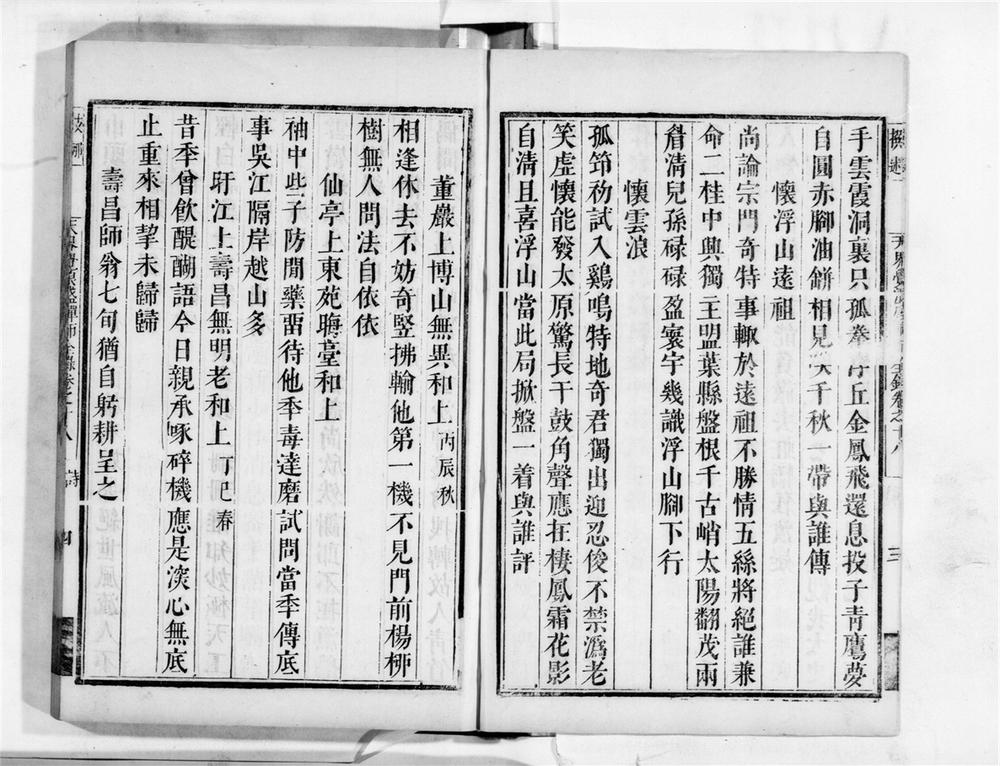 手雲霞洞裏只孤拳浮丘金鳳飛還息投子青鷹夢
自圓赤腳油餅相見笑千秋一帶與誰傳
懷浮山遠祖
尚論宗門奇特事輙於遠祖不勝情五絲將絕誰兼
命二桂中興獨主盟葉縣盤根千古峭太陽翻茂兩
眉清兒孫碌碌盈寰宇幾識浮山腳下行
懷雲浪
孤笻初試入鷄鳴特地奇君獨出迎忍俊不禁溈老
笑虛懷能發太原驚長干鼓角聲應在棲鳳霜花影
自清且喜浮山當此局掀盤一着與誰評
董巖上博山無異和上丙辰秋
相逢休去不妨奇竪拂輸他第一機不見門前楊栁
樹無人問法自依依
仙亭上東苑晦臺和上
袖中些子防閒藥畱待他季毒達磨試問當季傳底
事吳江隔岸越山多
盱江上壽昌無明老和上丁巳春
昔季曾飲醍醐語今日親承啄碎機應是婆心無底
止重來相挈未歸歸
壽昌師翁七旬猶自躬耕呈之